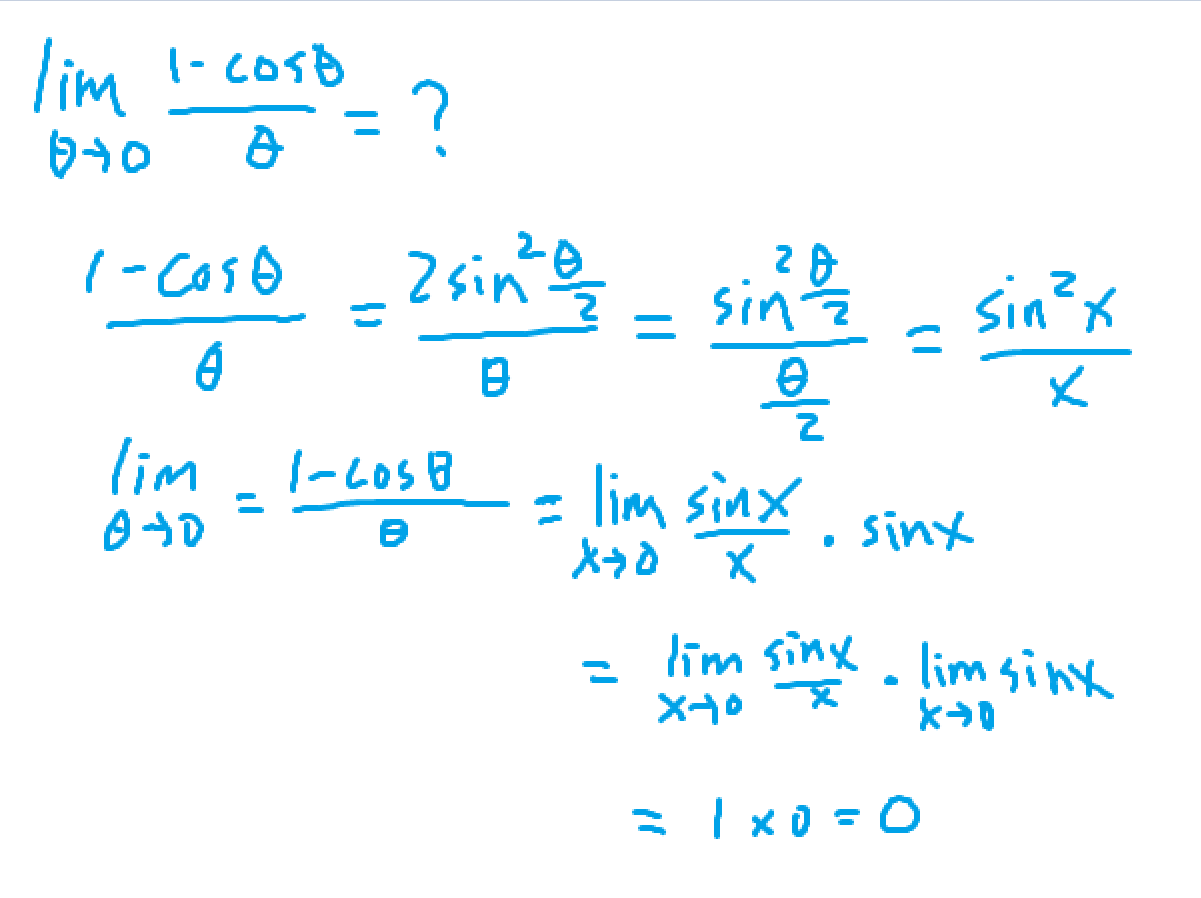 lim θ→0 (1-cosθ)/θ = ?
(1-cosθ)/θ = (2sin²(θ/2))/θ = (sin²(θ/2))/(θ/2) = (sin²x)/x
lim θ→0 = (1-cosθ)/θ = lim x→0 (sinx)/x · sinx
= lim x→0 (sinx)/x · lim x→0 sinx
= 1×0=0